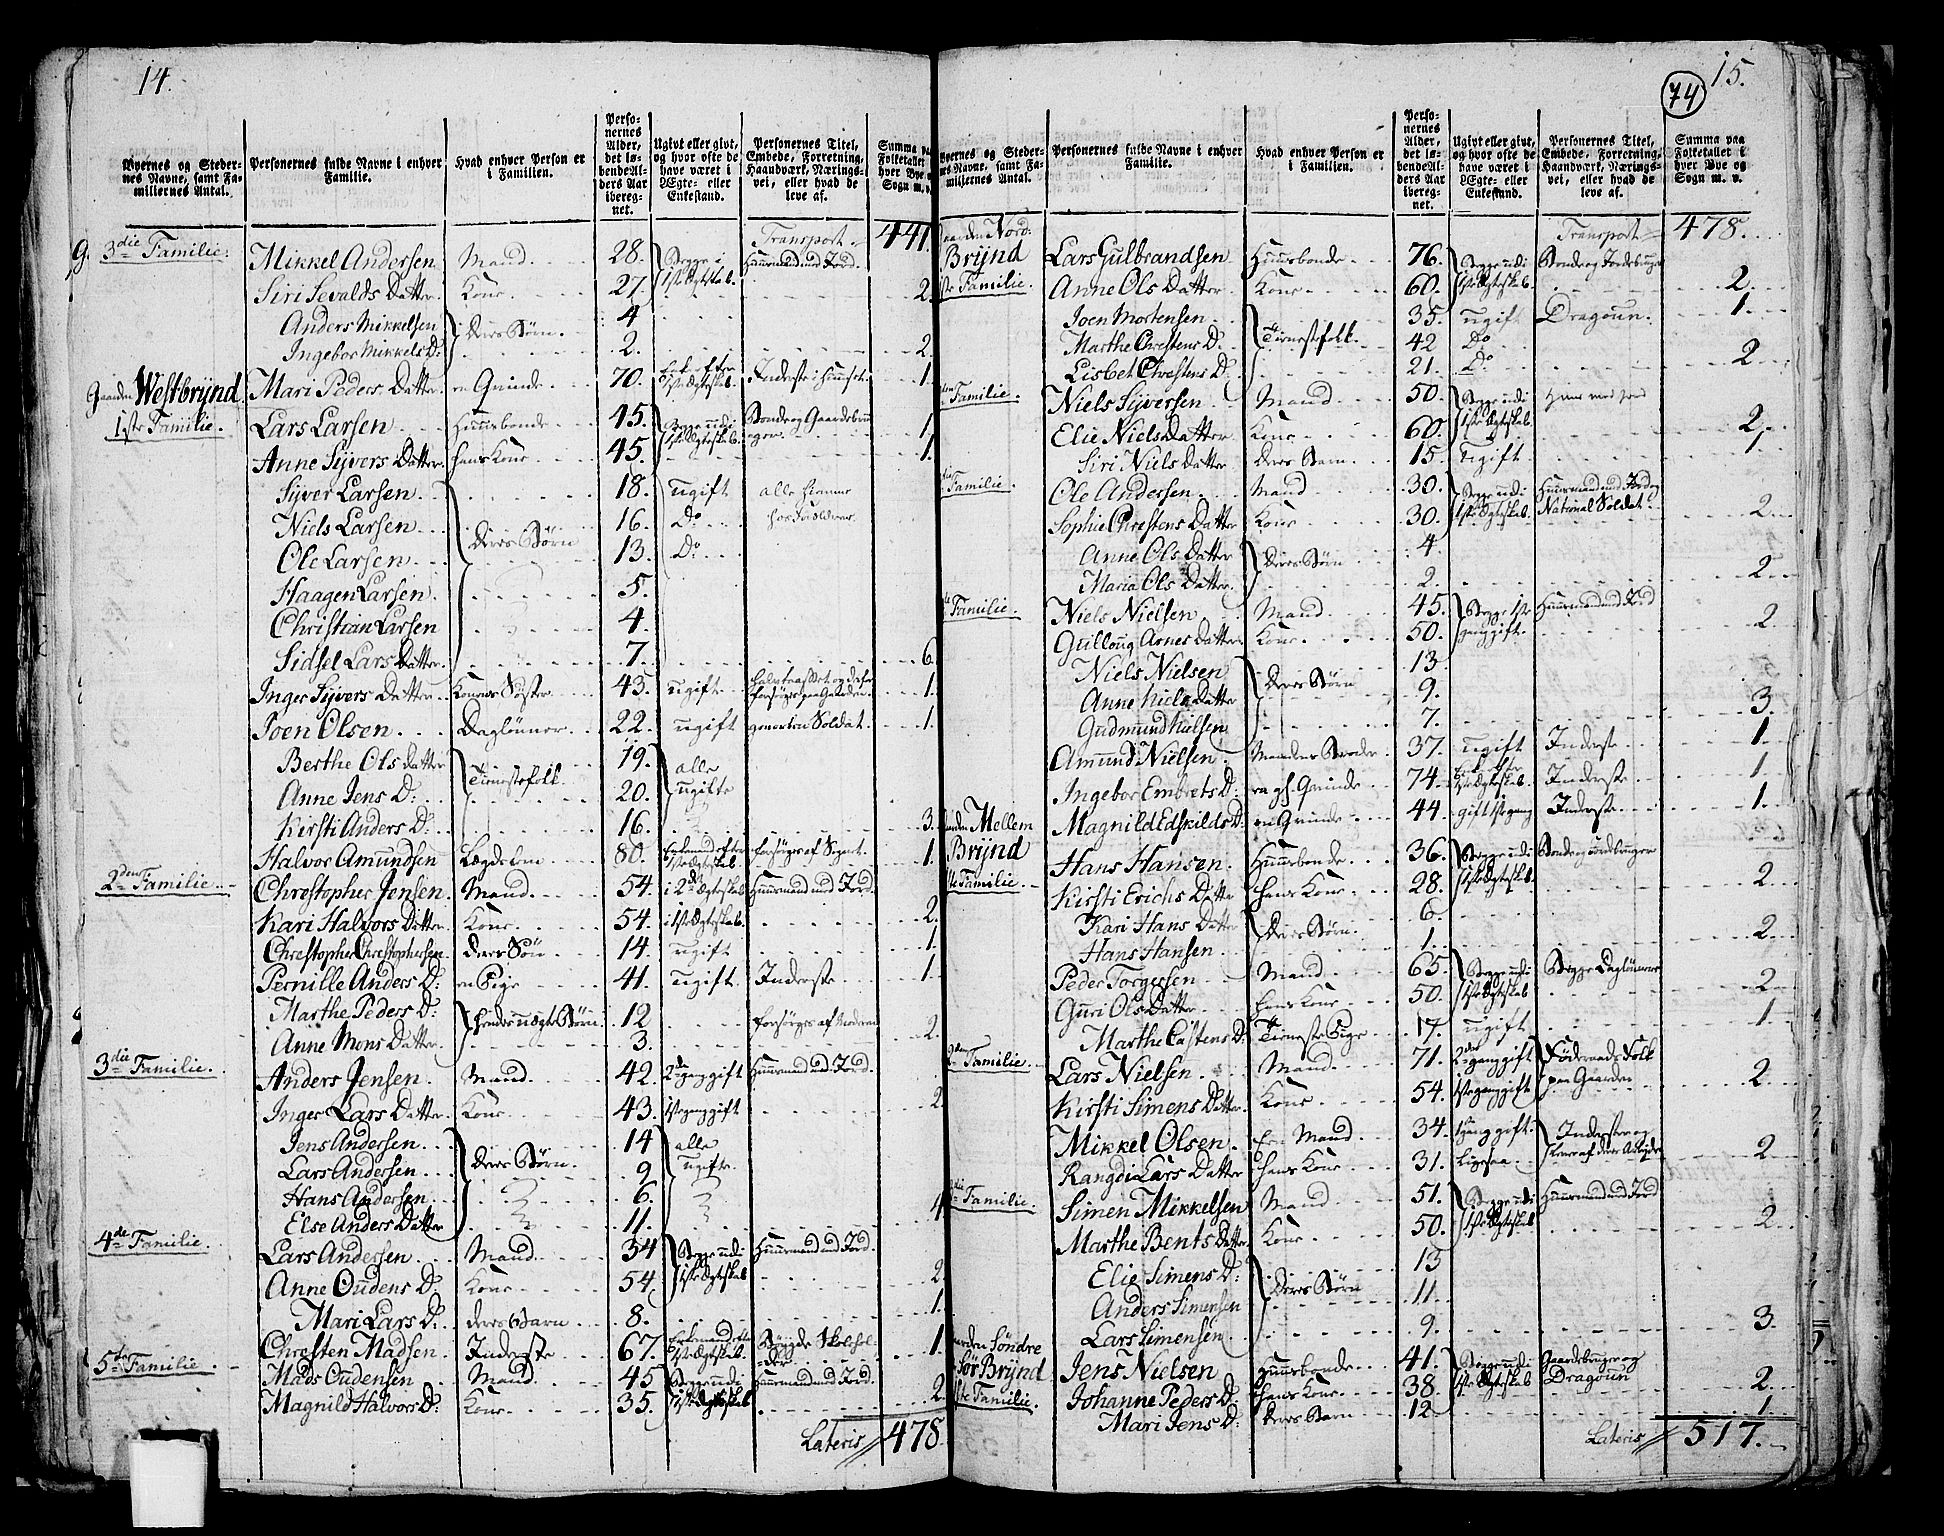 14.
Byernes og Stedernes Navne, samt Familiernes Antal.
Personernes fulde Navne i enhver Familie.
Hvad enhver Person er i Familien.
Personernes Alder, det løbende Alders Aar iberegnet.
Ugivt eller givt, og hvor ofte de have været i Ægte- eller Enkestand.
Personernes Titel, Embede, Forretning, Haandværk, Næringsvei, eller hvad de leve af.
Summa paa Folketallet i hver Bye og Sogn m. v.
Transport 441.
3die Familie. Mikkel Andersen Mand 28. Begge i 1ste Ægteskab Huusmand med Jord
Siri Sevalds Datter Kone 27. 2.
Anders Mikkelsen deres Børn 4
Ingebor Mikkels D: 2. 2.
Gaarden Westbrÿnd Mari Peders Datter en Qvinde 70. Enke efter 1ste Ægteskab Inderste i Huuset 1.
1ste Familie. Lars Larsen Huusbonde 45. Begge udi 1ste Ægteskab Bonde og Gaardebruger 1.
Anne Sÿvers Datter hans Kone 45. 1.
Sÿver Larsen 18. ugift alle hiemme
Niels Larsen deres Børn 16. Do hos Forældrene
Ole Larsen 13. Do
Haagen Larsen 5.
Christian Larsen 4.
Sidsel Lars Datter 7. 6.
Inger Sÿvers Datter Konens Søster 43. ugift 1.
Joen Olsen Daglønner 22. ugift gevorben Soldat 1.
Berthe Ols Datter Tienestefolk 19. alle ugifte
Anne Jens D: 20.
Kirsti Anders D: 16. 3.
Halvor Amundsen Lægdslem 80. Enkemand efter 1ste Ægteskab forsørges af Sognet 1.
2den Familie. Chrestopher Jensen Mand 54. i 2det Ægteskab Huusmand med Jord
Kari Halvors Datter Kone 54. i 1ste Ægteskab 2.
Chrestopher Chrestophersen deres Søn 14. ugift 1.
Pernille Anders D: en Pige 41. ugift Inderste 1.
Marthe Peders D: hendes uægte Børn 12 forsørges af Moderen
Anne Mons Datter 3. 2.
3die Familie. Anders Jensen Mand 42. 2den gang gift Huusmand med Jord
Inger Lars Datter Kone 43. 1ste gang gift 2.
Jens Andersen deres Børn 14 alle ugifte
Lars Andersen 9.
Hans Andersen 6.
Else Anders Datter 11. 4
4de Familie. Lars Andersen Mand 34 Begge udi 1ste Ægteskab Huusmand med Jord
Anne Oudens D: Kone 54 2.
Mari Lars D: deres Barn 8. 1.
Chresten Madsen Inderste 67. Enkemand efter 1ste Ægteskab 1.
5te Familie. Mads Oudensen Mand 45 Begge udi 1ste Ægteskab Huusmand med Jord
Magnild Halvors D: Kone 35. 2
Lateris 478.
15.
74
Byernes og Stedernes Navne, samt Familiernes Antal.
Personernes fulde Navne i enhver Familie.
Hvad enhver Person er i Familien.
Personernes Alder, det løbende Alders Aar iberegnet.
Ugivt eller givt, og hvor ofte de have været i Ægte- eller Enkestand.
Personernes Titel, Embede, Forretning, Haandværk, Næringsvei, eller hvad de leve af.
Summa paa Folketallet i hver Bye og Sogn m. v.
Transport 478.
Nord: Brÿnd Lars Gulbrandsen Huusbonde 76. Begge udi 1ste Ægteskab Bonde og Jordebruger
Familie. Anne Ols Datter Kone 60. 2.
Joen Mortensen Tienestefolk 35. ugift Dragoun. 1.
Marthe Chrestens D: 42 Do
Lisbet Chrestens D: 21. Do 2
Familie. Niels Sÿversen Mand 50. Begge udi 1ste Ægteskab Huus med Jord
Elie Niels Datter Kone 60. 2.
Siri Niels Datter deres Barn 15. ugift 1.
Familie. Ole Andersen Mand 30. Begge udi 1ste Ægteskab Huusmand med Jord og
Sophie Chrestens Datter Kone 30. National Soldat 2
Anne Ols Datter deres Børn 4
Maria Ols Datter 2. 2
Familie. Niels Nielsen Mand 45. Begge 1ste gang gift Huusmand med Jord
Gulloug Arnes Datter Kone 50. 2
Niels Nielsen deres Børn 13.
Anne Niels Datter 9.
Gudmund Nielsen 7. 3
Amund Nielsen Mandens Broder 37. ugift Inderste 1.
Ingebor Embrets D: en gl. Qvinde 74. Enke efter 1ste Ægteskab Inderste 1.
Magnild Edskilds D: en Qvinde 44 gift 1ste gang Inderste 1.
Mellem Brÿnd Hans Hansen Huusbonde 36. Begge udi 1ste Ægteskab Bonde og Jordbruger
Familie. Kirsti Erichs Datter hans Kone 28. 2
Kari Hans Datter deres Børn 6.
Hans Hansen 1. 2
Peder Torgersen Mand 65. Begge udi 1ste Ægteskab Begge Daglønnere
Guri Ols Datter hans Kone 50. 2
Marthe Castens D: Tieneste Pige 17. ugift 1
Familie. Lars Nielsen Mand 71. 2den gang gift Føderaads Folk
Kirsti Simens Datter Kone 54. 1ste gang gift paa Gaarden 2
Mikkel Olsen en Mand 34. 1ste gang gift Inderster og
Rangdi Lars Datter hans Kone 31. ligesaa lever af deres Arbeide 2
Familie. Simen Mikkelsen Mand 51. Begge udi 1ste Ægteskab Huusmand med Jord
Marthe Bents Datter Kone 50. 2
Elie Simens D: deres Børn 13
Anders Simensen 11.
Lars Simensen 9. 3
Søndre Sør Brÿnd Jens Nielsen Huusbonde 41. Begge udi 1ste Ægteskab Gaardebruger og
Familie. Johanne Peders D: hans Kone 38. Dragoun 2
Mari Jens D: deres Barn 12 1
Lateris 517.